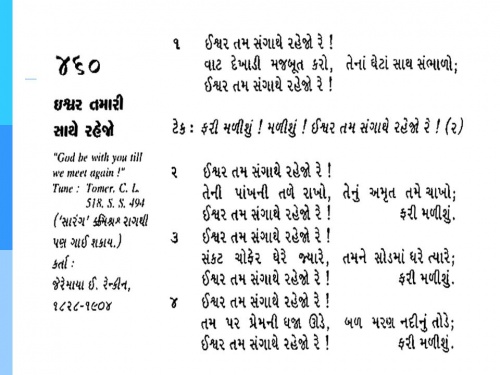 ૪૬૦
ઇશ્વર તમારી
સાથે રહેજો
"God be with you till
we meet again !"
Tune : Tomer, C. L.
518, S. S. 494
('સારંગ' ક્રમિશ્રશ્ર રાગથી
પણ ગાઈ શકાય.)
કર્તા :
જેરેમાયા ઈ. રેન્કીન,
૧૮૨૮-૧૯૦૪
૧ ઈશ્વર તમ સંગાથે રહેજો રે !
વાટ દેખાડી મજબૂત કરો, તેનાં ઘેટાં સાથ સંભાળો;
ઈશ્વર તમ સંગાથે રહેજો રે !
ટેક: ફરી મળીશું ! મળીશું ! ઈશ્વર તમ સંગાથે રહેજો રે ! (૨)
૨ ઈશ્વર તમ સંગાથે રહેજો રે !
તેની પાંખની તળે રાખો, તેનું અમૃત તમે ચાખો;
ઈશ્વર તમ સંગાથે રહેજો રે ! ફરી મળીશું.
૩ ઈશ્વર તમ સંગાથે રહેજો રે !
સંકટ ચોફેર ઘેરે જ્યારે, તમને સોડમાં ધરે ત્યારે;
ઈશ્વર તમ સંગાથે રહેજો રે ! ફરી મળીશું.
૪ ઈશ્વર તમ સંગાથે રહેજો રે !
તમ પર પ્રેમની ધજા ઊડે, બળ મરણ નદીનું તોડે;
ઈશ્વર તમ સંગાથે રહેજો રે ! ફરી મળીશું.